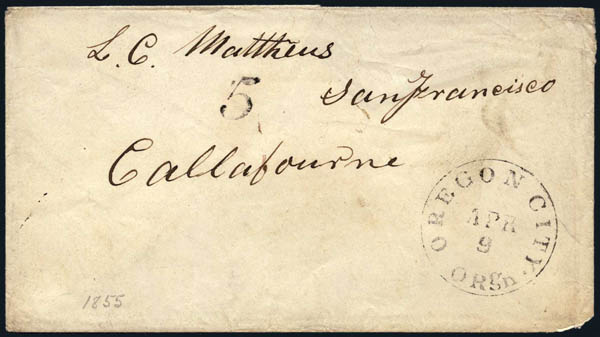 L. C. Mattheus
5
San Francisco
Callafourne
OREGON CITY.
APR
9
ORgn
1855